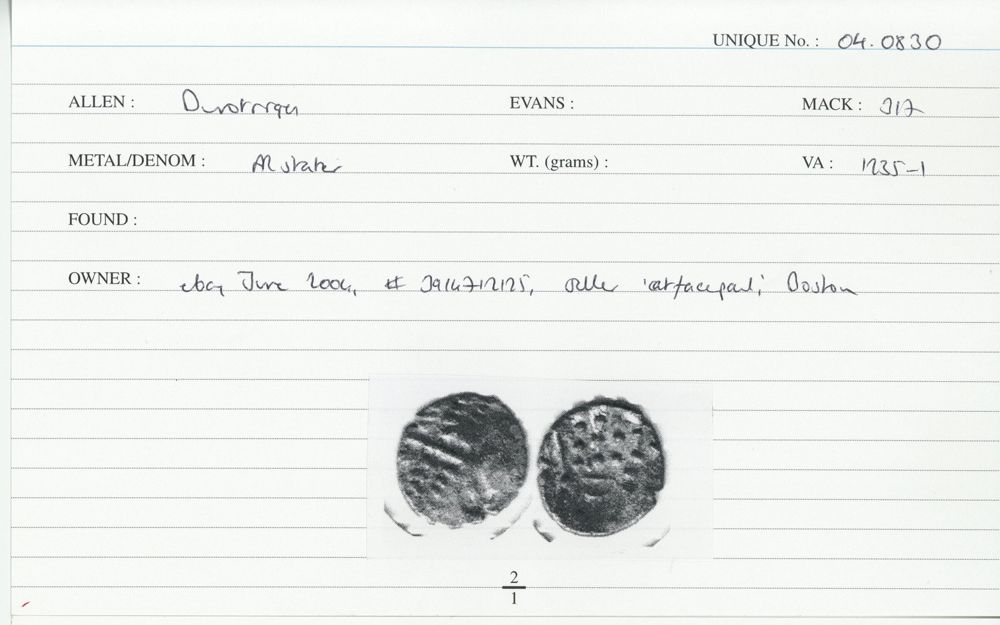 UNIQUE No. : 04.0830
ALLEN : Durotriges EVANS : MACK : 317
METAL/DENOM : AR stater WT. (grams) : VA : 1235-1
FOUND :
OWNER : ebay June 2004, # 3914712125, seller 'catfacepaul', Boston
2
1